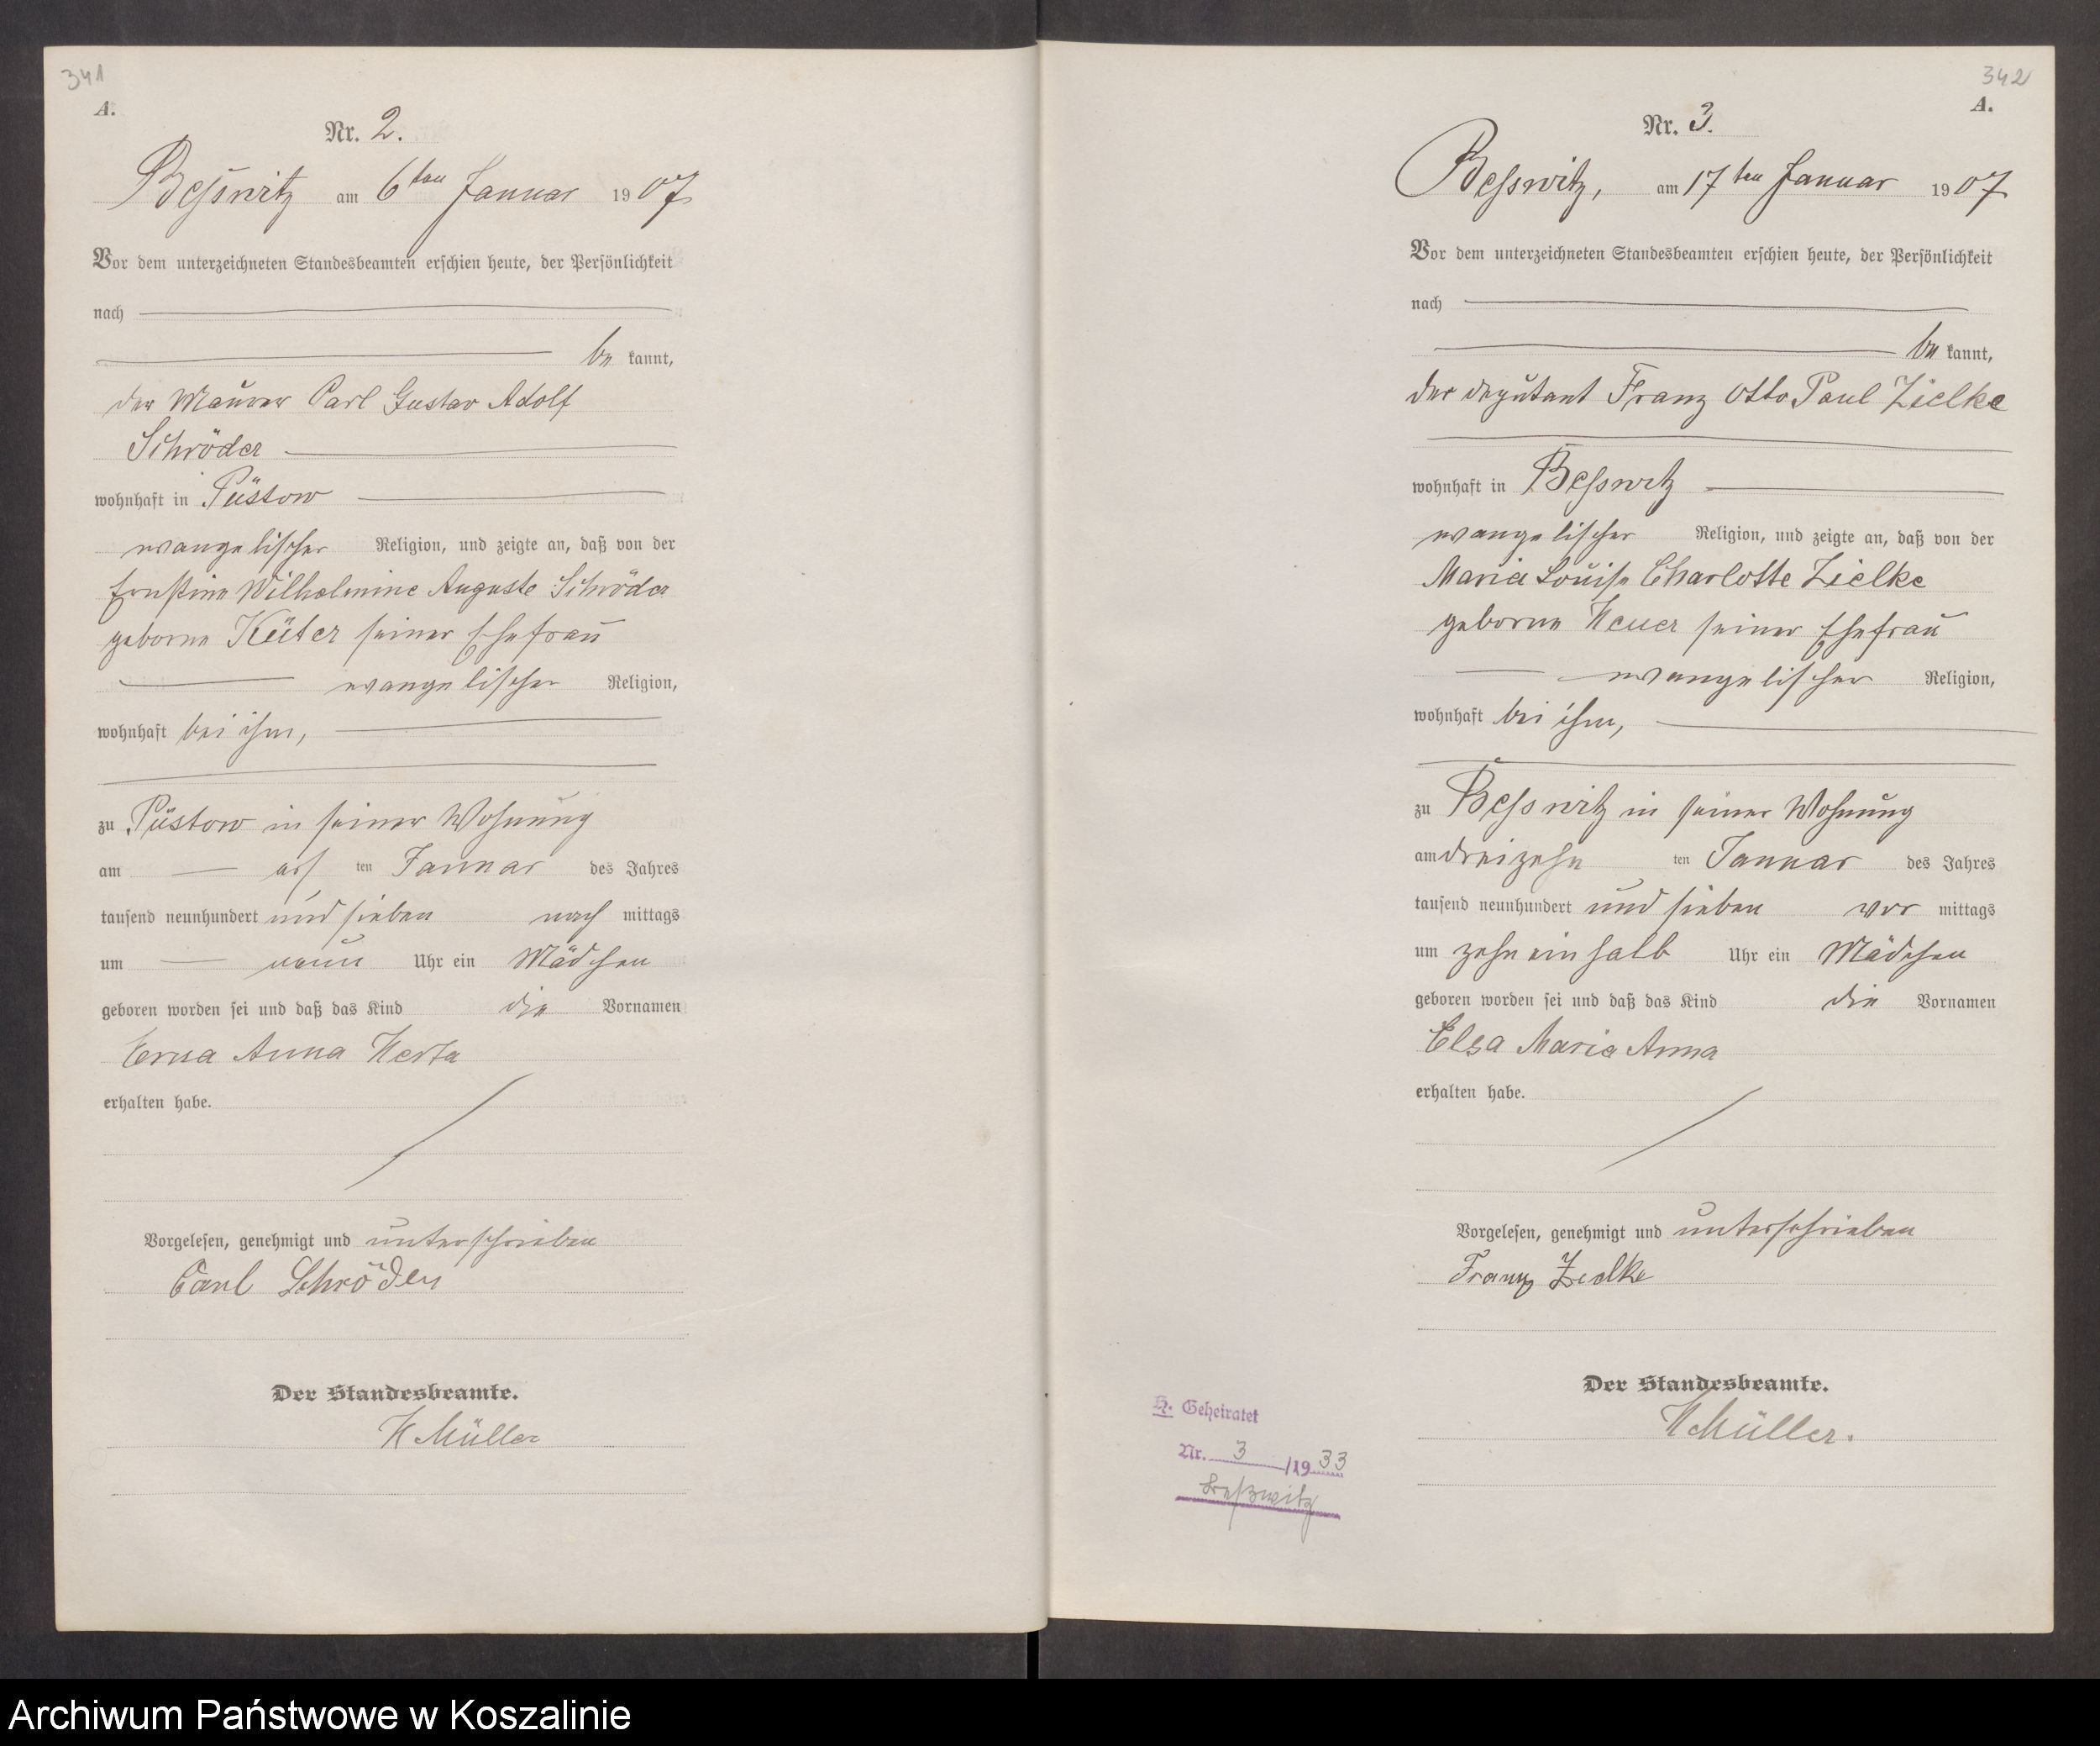 341
A.
Nr. 2.
Beßwitz am 6ten Januar 1907
Vor dem unterzeichneten Standesbeamten erschien heute, der Persönlichkeit
nach
be kannt,
der Maurer Carl Gustav Adolf
Schröder
wohnhaft in Püstow
evangelischer Religion, und zeigte an, daß von der
Ernstine Wilhelmine Auguste Schröder
geborne Küter seiner Ehefrau
evangelischer Religion,
wohnhaft bei ihm,
zu Püstow in seiner Wohnung
am ten Januar des Jahres
tausend neunhundert und sieben nach mittags
um neun Uhr ein Mädchen
geboren worden sei und daß das Kind die Vornamen
Erna Anna Herta
erhalten habe.
Vorgelesen, genehmigt und unterschrieben
Carl Schröder
Der Standesbeamte.
H Müller
342
A.
Nr. 3.
Beßwitz, am 17ten Januar 1907
Vor dem unterzeichneten Standesbeamten erschien heute, der Persönlichkeit
nach
be kannt,
der Deputant Franz Otto Paul Zielke
wohnhaft in Beßwitz
evangelischer Religion, und zeigte an, daß von der
Maria Louise Charlotte Zielke
geborne Heuer seiner Ehefrau
evangelischer Religion,
wohnhaft bei ihm,
zu Beßwitz in seiner Wohnung
am dreizehn ten Januar des Jahres
tausend neunhundert und sieben vor mittags
um zehn ein halb Uhr ein Mädchen
geboren worden sei und daß das Kind die Vornamen
Elsa Maria Anna
erhalten habe.
Vorgelesen, genehmigt und unterschrieben
Franz Zielke
Der Standesbeamte.
H Müller.
H. Geheiratet
Nr. 3 /1933
Beßwitz
Archiwum Państwowe w Koszalinie